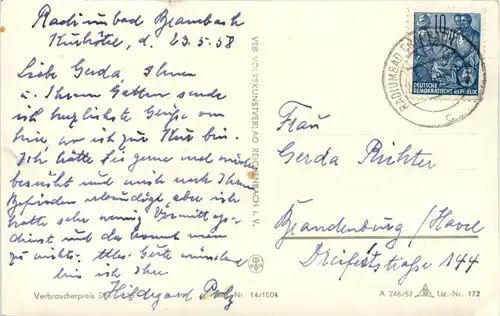 Radiumbad Brambach
Kurhotel, d. 23.5.58
Liebe Gerda, Ihnen
u. Ihrem Gatten sende
ich herzlichste Grüße von
hier, wo ich zur Kur bin.
Ich hätte Sie gerne mal wieder
besucht und mich nach Ihrem
Befinden erkundigt, aber ich
hatte sehr wenig Vormittags-
dienst und da kommt man
zu nichts. Alles Gute wünschend
bin ich Ihre
Hildegard
VEB VOLKSKUNSTVERLAG REICHENBACH I. V.
10
DEUTSCHE
DEMOKRATISCHE REPUBLIK
RADIUMBAD
Frau
Gerda Richter
Brandenburg / Havel
Dreifertstraße 144
Verbraucherpreis Nr 14/1004
A 246/57 Liz.-Nr. 172